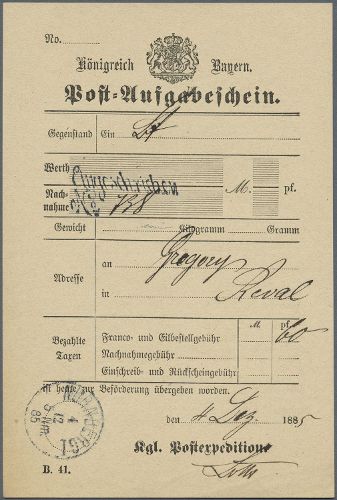 No.
Königreich Bayern.
Post-Aufgabeschein.
Gegenstand Ein Bf
Werth
Eingeschrieben
Nach-
nahme 738 M. pf.
Gewicht Kilogramm Gramm
Adresse an Gregory
in Reval
M. pf.
Bezahlte Taxen
Franco- und Eilbestellgebühr 60
Nachnahmegebühr
Einschreib- und Rückscheingebühr
ist heute zur Beförderung übergeben worden.
den 4 Dez 1885
Kgl. Postexpedition
NÜRNBERG I
4 12
5 Nm.
85
B. 41.